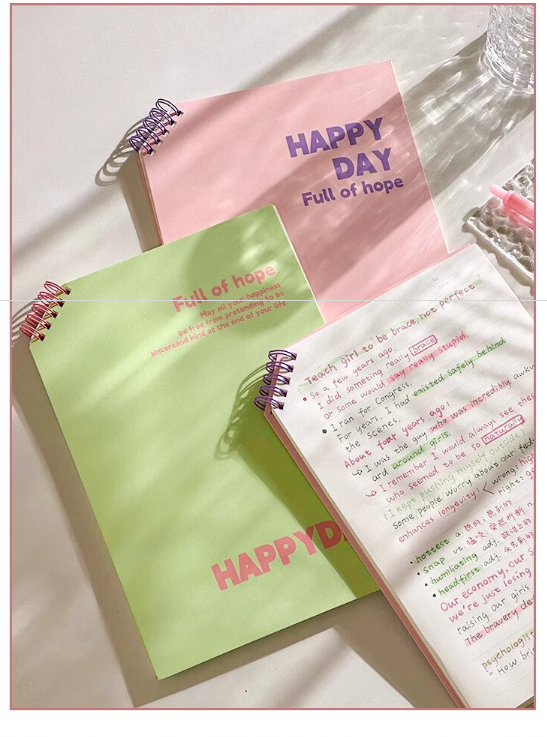 HAPPY
DAY
Full of hope
Full of hope
May all your happiness
be free from pretending to be
sincereand kind at the end of your life
HAPPYD
Teach girl to be brace, not perfect
So a few years ago.
I did someting really brace
or some would say really stupid
I ran for Congress.
For years, I had existed safely behind
the scenes.
About four years ago:
I was the guy who was incredibly awkw
ard around girls
I remember I would always see the
who seemed to be so naturally
I kept pushing myself outside
some people worry about our fed
enhances longevity: wrong: high
right: g
hottest a
snap vt
humiliating adj.
headfirst adj
Our economy, our s
we're just losing
raising our girls
The bravery de
psychologist
"How bri